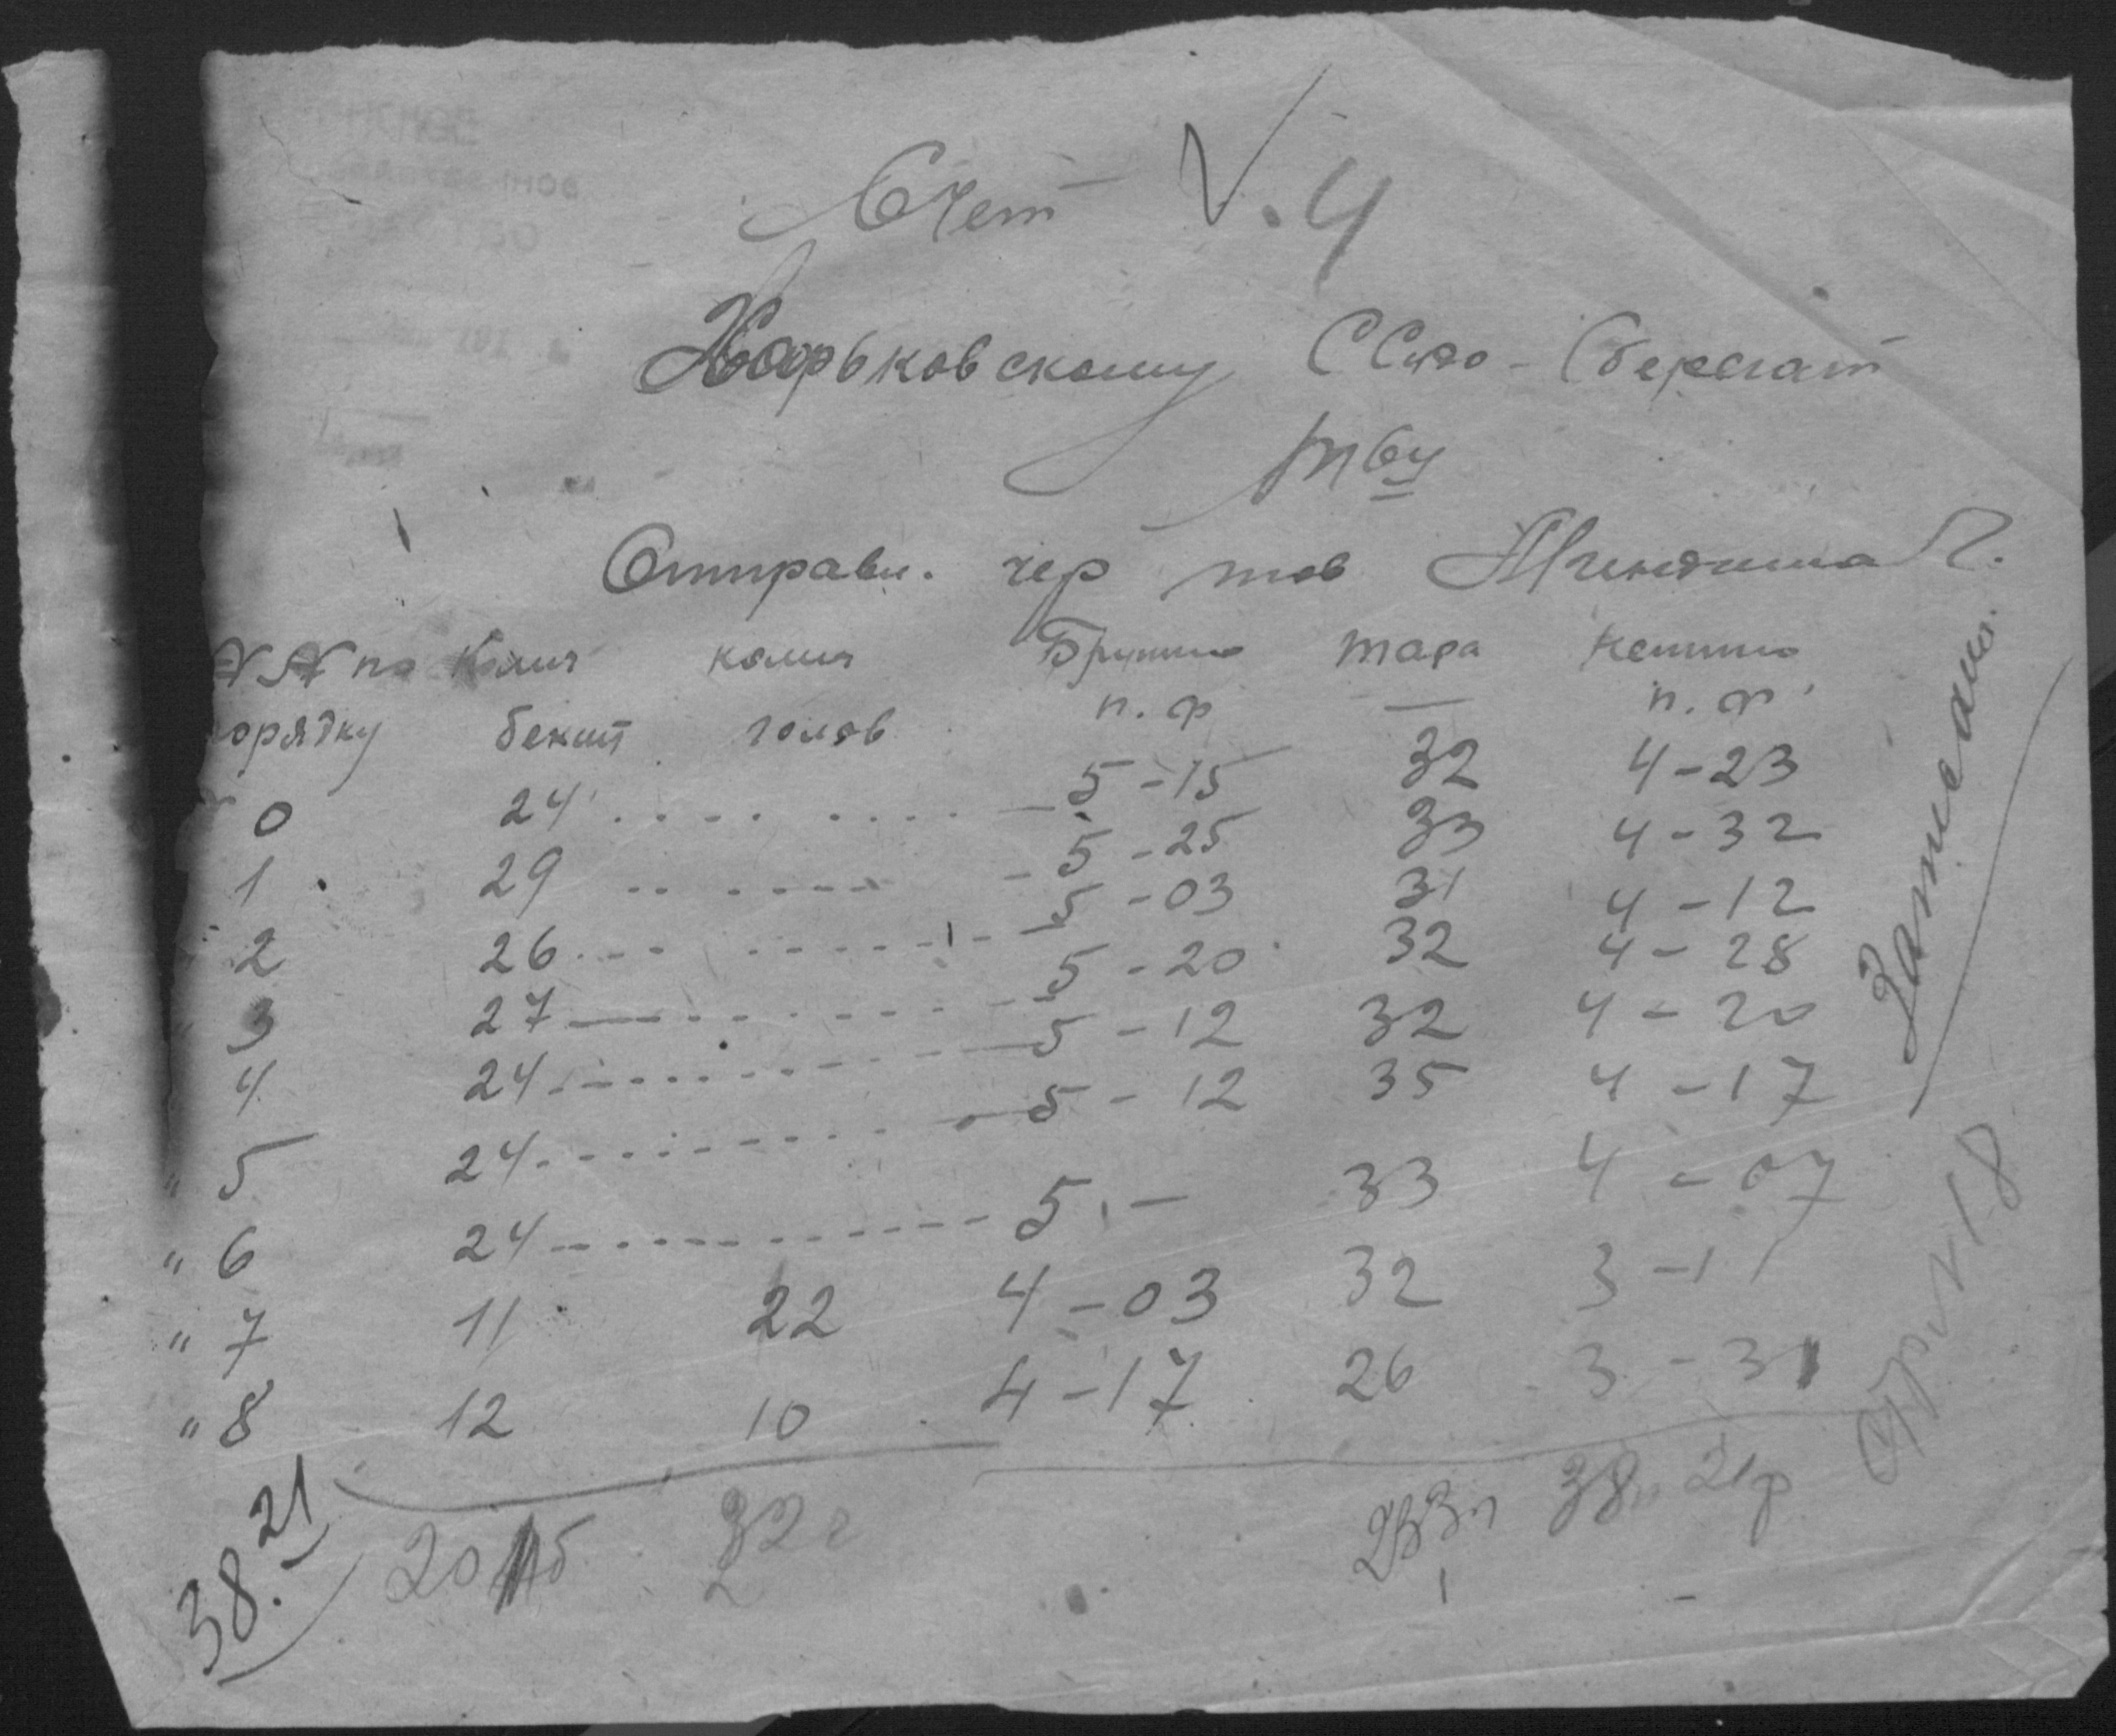 Счет №. 4
Харьковскому ССудо-Сберегат
тву
Отправл. чер тов
№№ по Колич колич Брутто тара нетто
порядку бекит голов п. ф — п. ф
0 24 5-15 32 4-23
1 29 5-25 33 4-32
2 26 5-03 31 4-12
3 27 5-20 32 4-28
4 24 5-12 32 4-20
5 24 5-12 35 4-17
" 6 24 5.- 33 4-07
" 7 11 22 4-03 32 3-11
" 8 12 10 4-17 26 3-31
201 б 32 г 38п 21ф
38.21